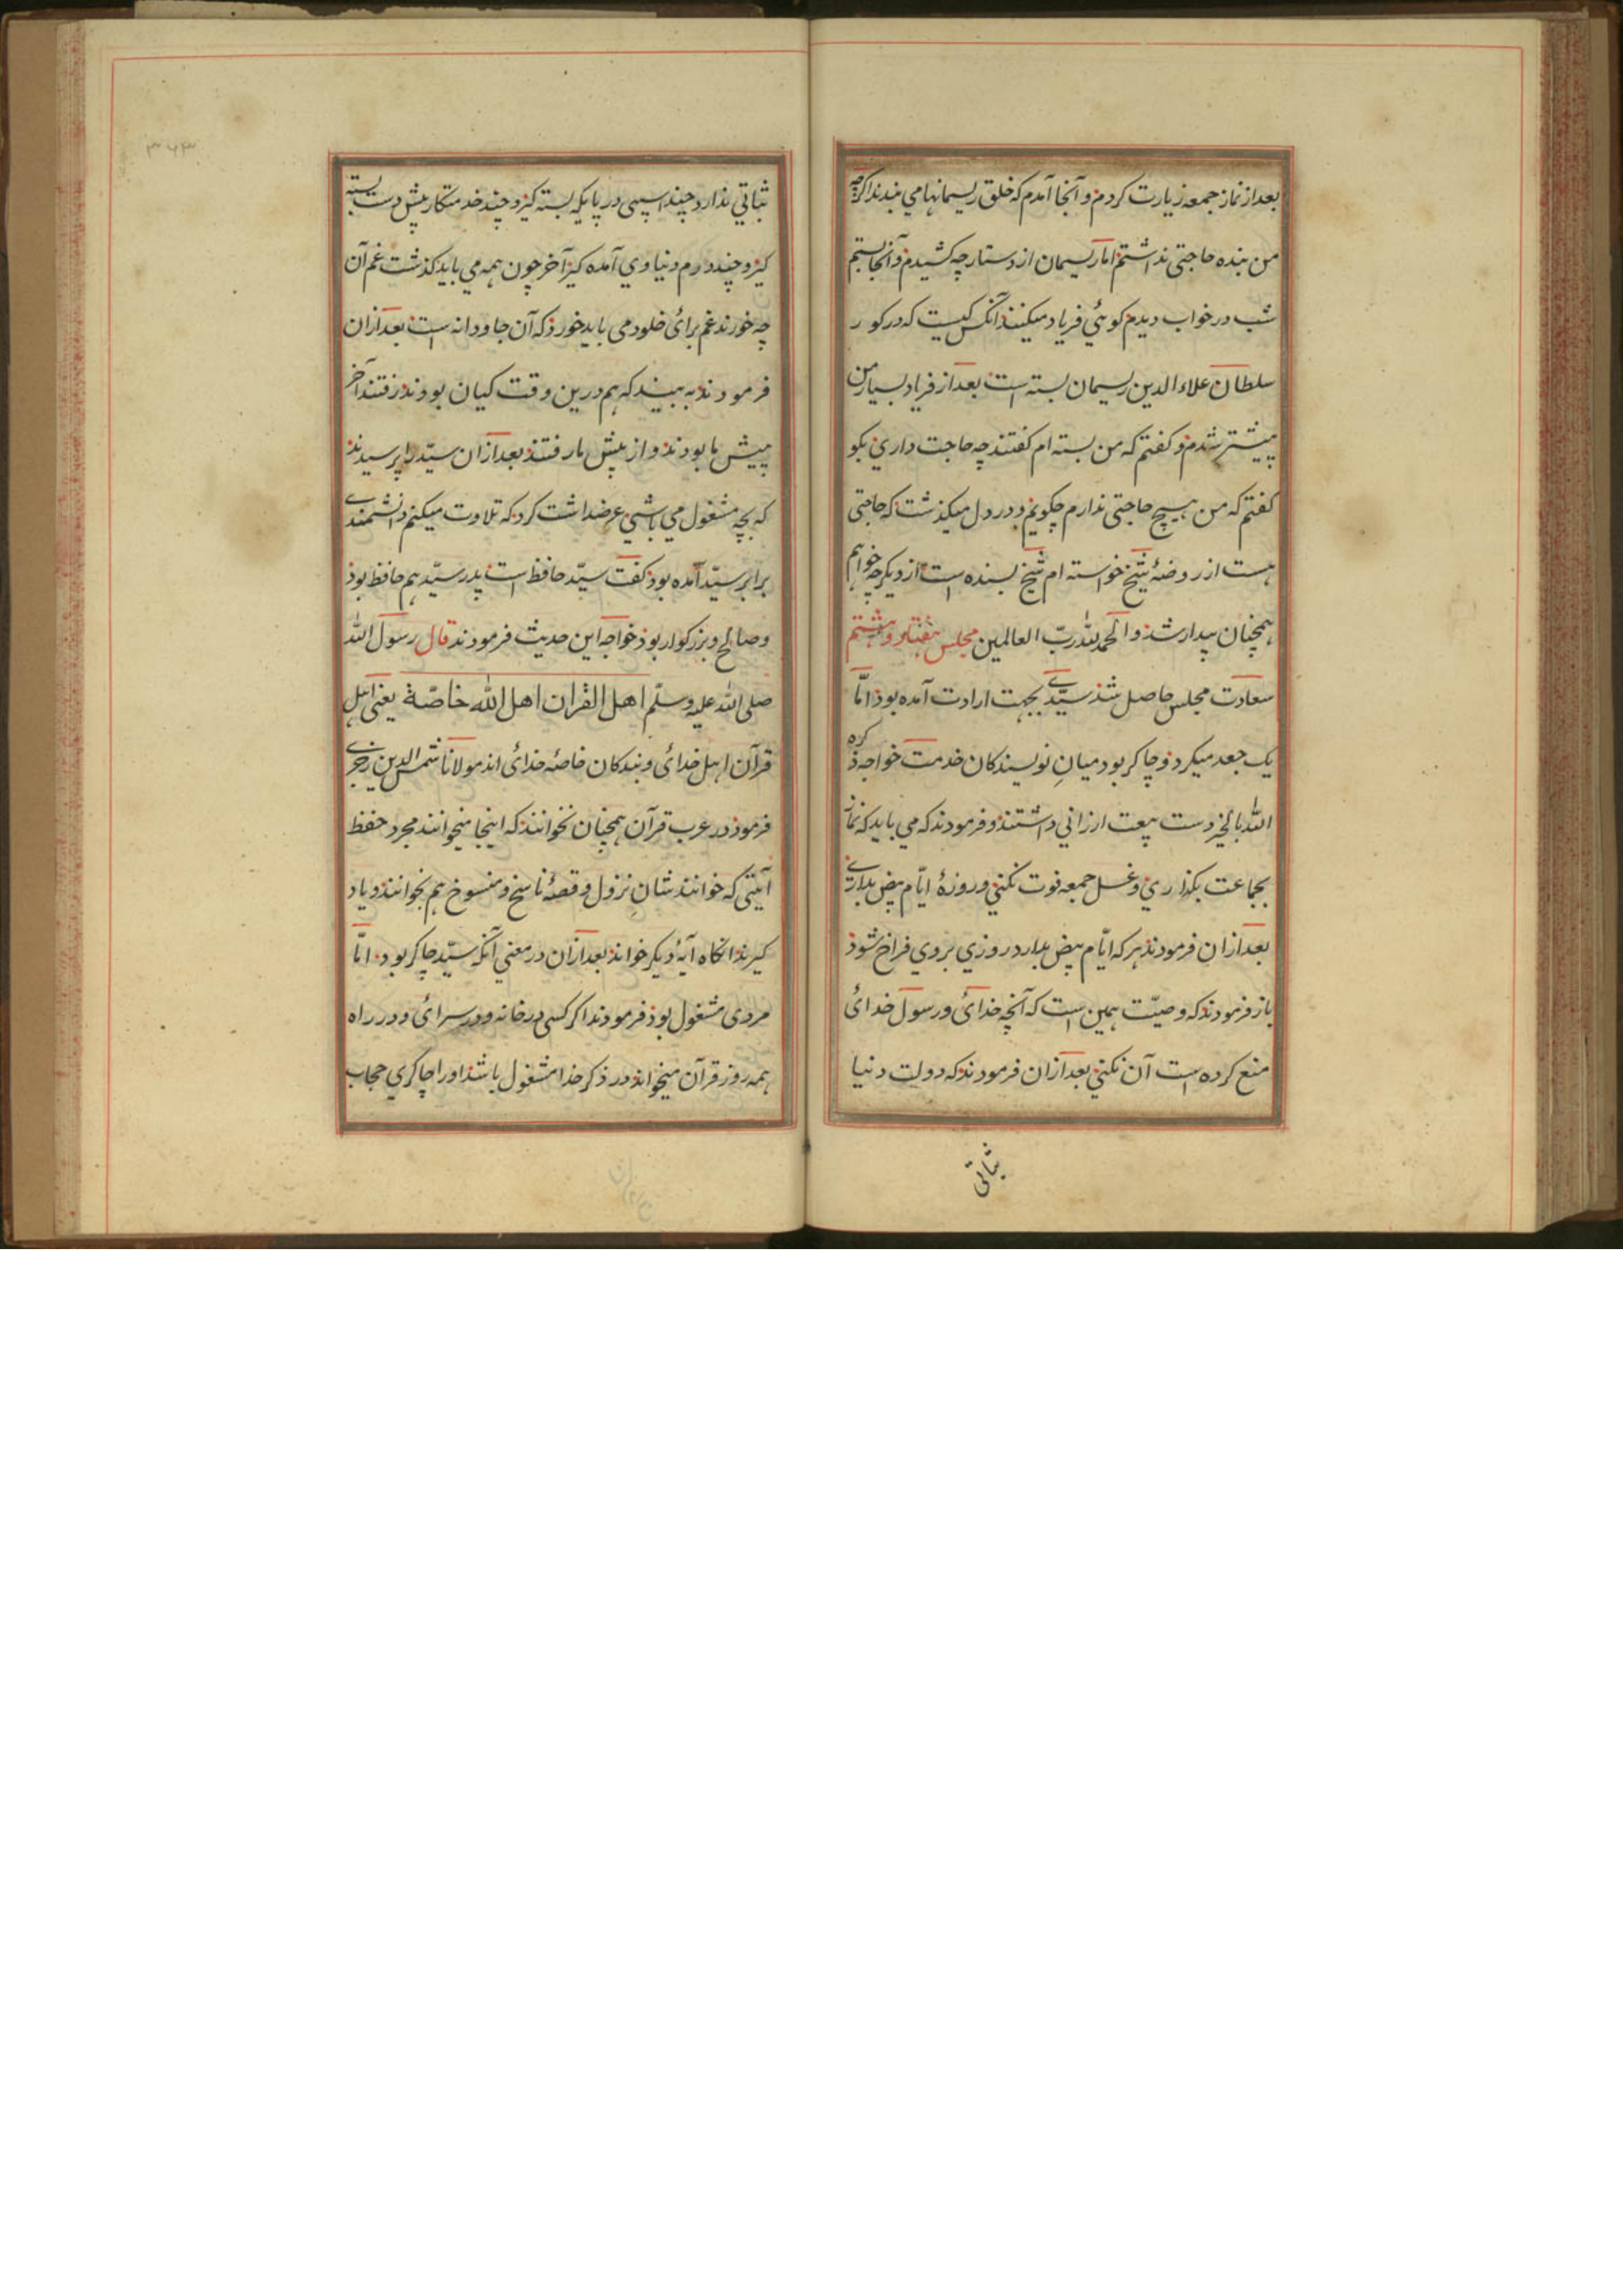 بعد از نماز جمعه زیارت کردم و آنجا آمدم که خلق ریسمانها می بندند اگرچه
من بنده حاجتی نداشتم اما ریسمان از دستارچه کشیدم و آنجا بستم
شب در خواب دیدم گوئی فریاد میکنند آنکس کیست که در گور
سلطان علاء الدین ریسمان بسته است بعد از فریاد بسیار من
پیشتر شدم و گفتم که من بسته ام گفتند چه حاجت داری بگو
گفتم که من هیچ حاجتی ندارم چگویم و در دل میگذشت که حاجتی
هست از روضهٔ شیخ خواسته ام شیخ بسنده است از دیگر چه خواهم
همچنان بیدار شد و الحمد لله ربّ العالمین مجلس هفتاد و هشتم
سعادت مجلس حاصل شد سیّدی بجهت ارادت آمده بود امّا
یک جعد میکرد و چاکر بود میانِ نویسندگان خدمت خواجه ذکره
الله بالخیر دست بیعت ارزانی داشتند و فرمودند که می باید که نماز
بجماعت بگذاری و غسل جمعه فوت نکنی و روزهٔ ایّام بیض بداری
بعد از ان فرمودند هر که ایّام بیض بدارد روزی بروی فراخ شود
باز فرمودند که وصیّت همین است که آنچه خدائ و رسول خدائ
منع کرده است آن نکنی بعد ازان فرمودند که دولت دنیا
ثباتی
۳۶۳
ثباتی ندارد چند اسپی در پایگه بسته گیر و چند خدمتگار پیش دست بسته
گیر و چند درم دنیاوی آمده گیر آخر چون همه می باید گذشت غم آن
چه خورند غم برائ خلود می باید خورد که آن جاودانه است بعد ازان
فرمودند به بینید که هم درین وقت کیان بودند رفتند آخر
پیش ما بودند و از پیش ما رفتند بعد ازان سیّد را پرسیدند
که بچه مشغول می باشی عرضداشت کرد که تلاوت میکنم دانشمندی
برابر سیّد آمده بود گفت سیّد حافظ است پدر سیّد هم حافظ بود
و صالح و بزرگوار بود خواجه این حدیث فرمودند قال رسول الله
صلی الله علیه وسلّم اهل القران اهل الله خاصّة یعنی اهل
قرآن اهل خدائ و بندگان خاصهٔ خدائ اند مولانا شمس الدین
فرمود در عرب قرآن همچنان نخوانند که اینجا میخوانند مجرد حفظ
آیتی که خوانند شانِ نزول و قصهٔ ناسخ و منسوخ هم بخوانند و یاد
گیرند انگاه آیهٔ دیگر خواند بعد ازان در معنی آنکه سیّد چاکر بود امّا
مردی مشغول بود فرمودند اگر کسی در خانه و در سرائ و در راه
همه روز قرآن میخواند در ذکر خدا مشغول باشد او را چاکری حجاب